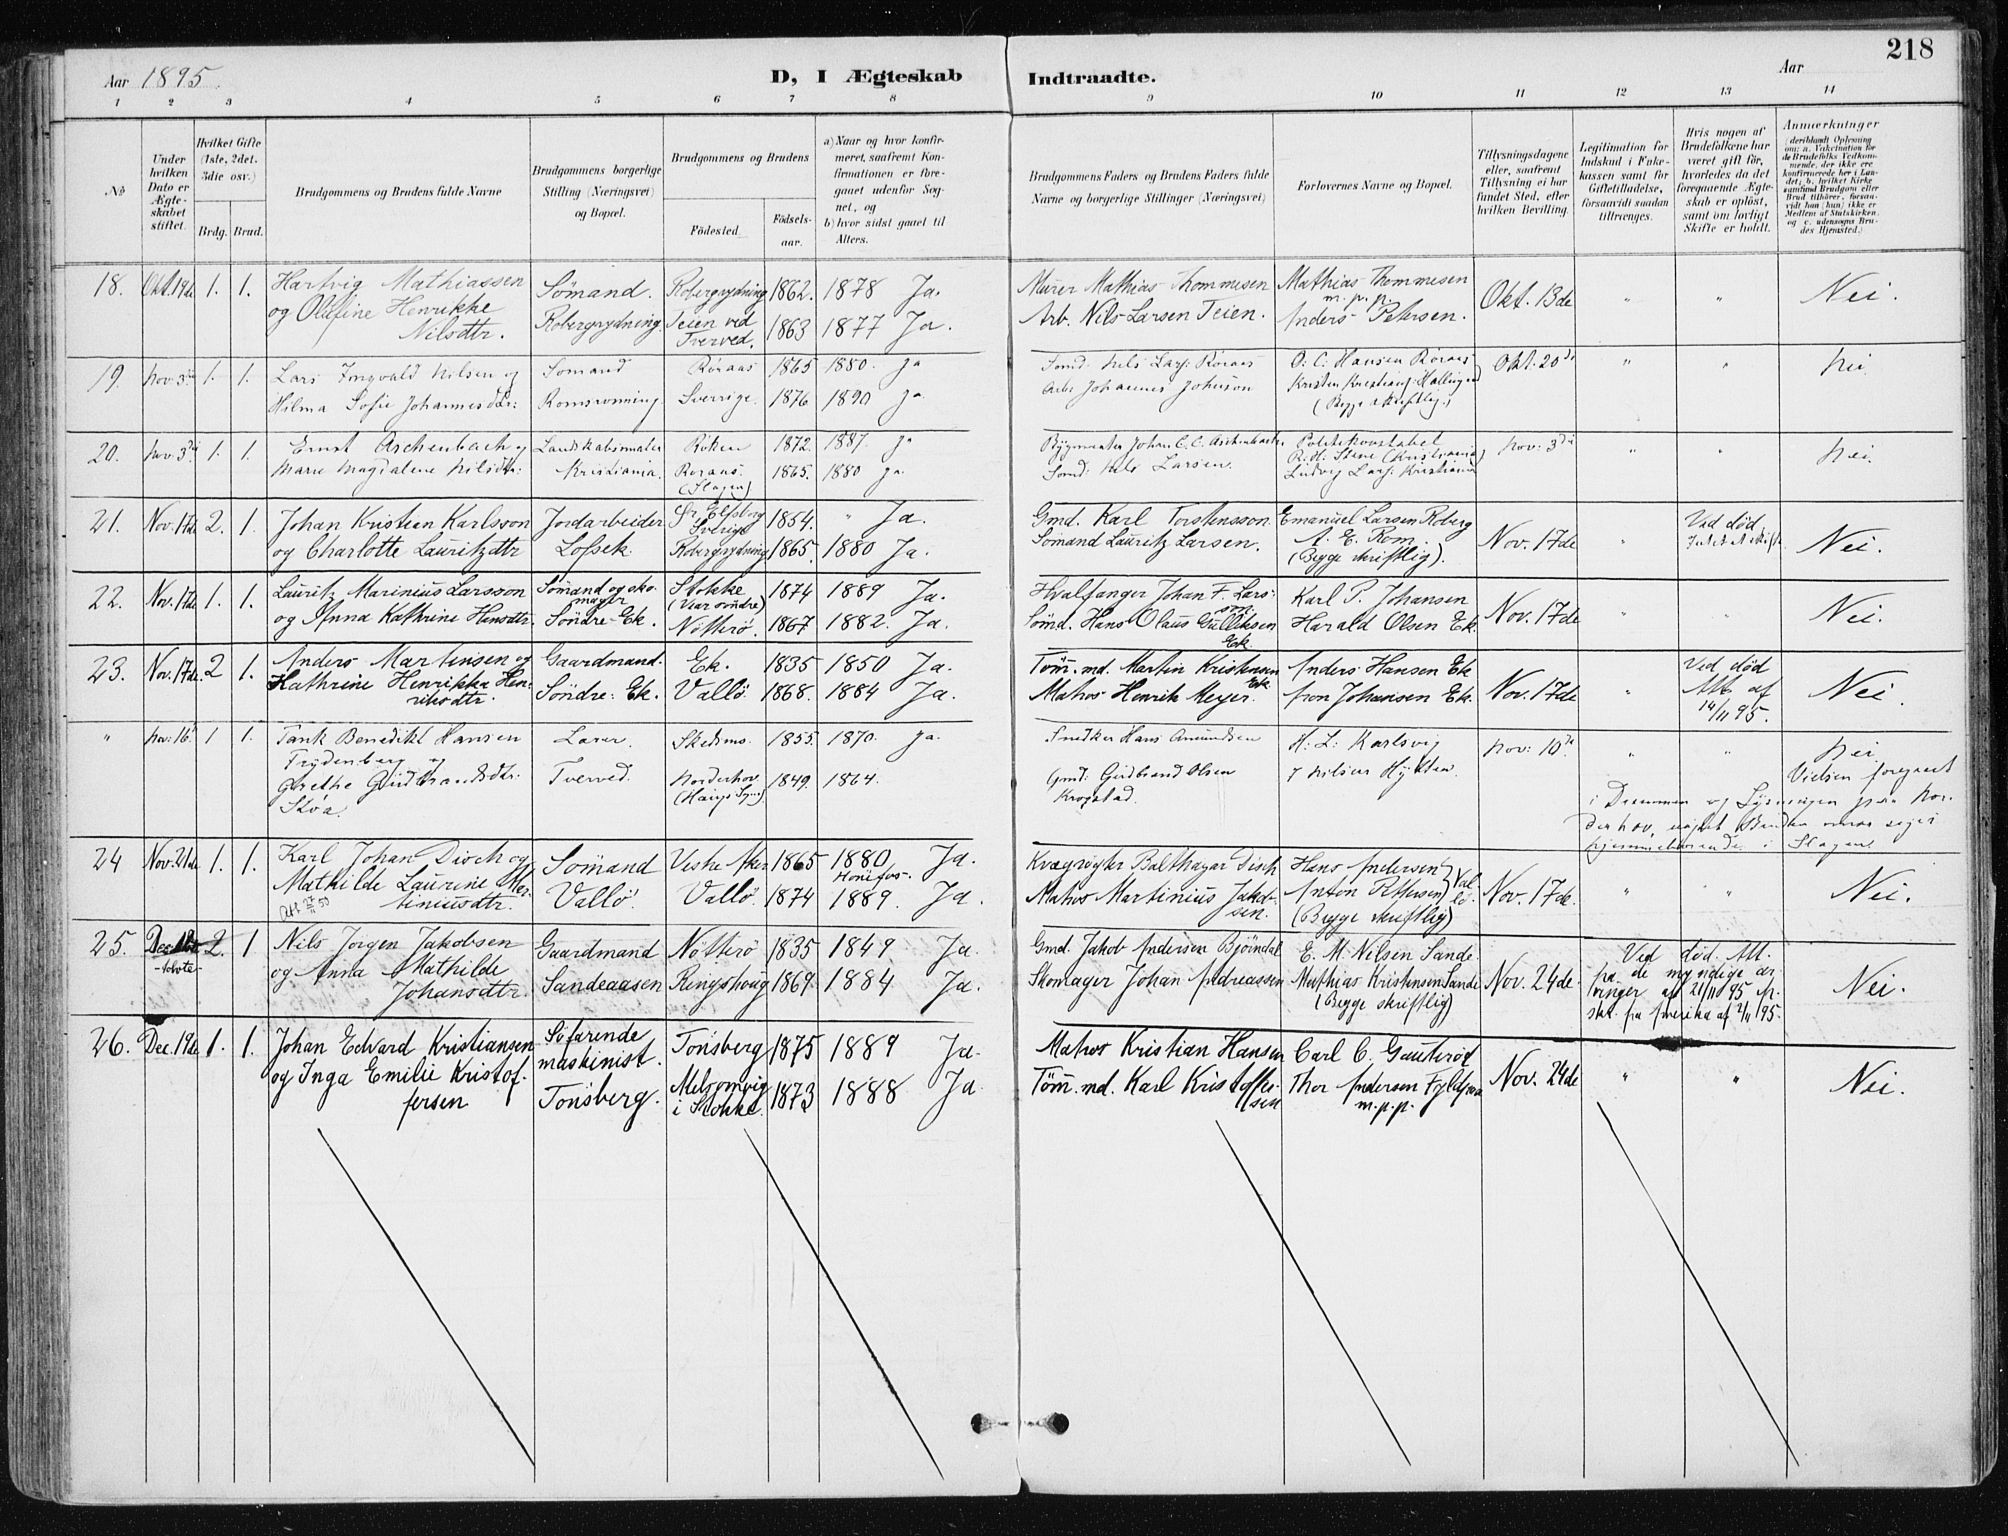 218
Aar 1895.
D, I Ægteskab Indtraadte.
Aar
1 2 3 4 5 6 7 8 9 10 11 12 13 14
No
Under hvilken Dato er Ægteskabet stiftet.
Hvilket Gifte (1ste, 2det. 3die osv.)
Brdg. Brud.
Brudgommens og Brudens fulde Navne
Brudgommens borgerlige Stilling (Næringsvei) og Bopæl.
Brudgommens og Brudens
Födested
Födsels-aar.
a) Naar og hvor konfirmeret, saafremt Konfirmationen er foregaaet udenfor Sognet, og
b) hvor sidst gaaet til Alters.
Brudgommens Faders og Brudens Faders fulde Navne og borgerlige Stillinger (Næringsvei)
Forlovernes Navne og Bopæl.
Tillysningsdagene eller, saafremt Tillysning ei har fundet Sted, efter hvilken Bevilling.
Legitimation for Indskud i Enkekassen samt for Giftetilladelse, forsaavidt saadan tiltrænges.
Hvis nogen af Brudefolkene har været gift för, hvorledes da det foregaaende Ægteskab er oplöst, samt om lovligt Skifte er holdt.
Anmærkninger
18. Okt. 19de 1. 1. Hartvig Mathiassen Sömand. Robergrydning 1862. 1878 Ja. Murer Mathias Thommesen Mathias Thommesen Okt. 13de " " Nei.
og Olefine Henrikke Robergrydning Teien ved 1863 1877 Ja. Arb. Nils Larsen Teien. m.p.p. Anders Petersen.
Nilsdtr. Tverved.
19. Nov. 3die 1. 1. Lars Ingvald Nilsen og Sömand Röraas 1865 1880. Ja Sömd. Nils Lars: Röraas O: C: Hansen Röraas Okt. 20de " " Nei
Hilma Sofie Johannesdtr: Romsrönning Sverrige. 1876 1890 Ja Arb: Johannes Johnson Kristen Kristians: Hallingen
(Begge skriftlig.)
20. Nov. 3die 1. 1. Ernst Aschenbach og Landskabsmaler Röken 1872. 1887. Ja Bygmester Johan C. C. Aschenbach. Politikonstabel Nov: 3die " " Nei.
Marie Magdalene Nilsdtr: Kristiania. Röraas 1865. 1880 Ja. Sömd: Nils Larsen. R. H. Stene (Kristiania)
(Slagen) Ludvig Lars: Kristiania
21. Nov. 17de 2. 1. Johan Kristian Karlsson Jordarbeider Sverige 1854. " Ja. Gmd. Karl Torstensson. Emanuel Larsen Roberg Nov. 17de " Ved död Nei.
og Charlotte Lauritzdtr Lofsek. Robergrydning 1865. 1880 Ja. Sömand Lauritz Larsen. A. E. Rom.
(Begge skriftlig).
22. Nov. 17de 1. 1. Lauritz Marinius Larsson Sömand og skomager Stokke 1874 1889 Ja. Hvalfanger Johan F. Larsson. Karl P. Johansen Nov. 17de " " Nei.
og Anna Kathrine Hansdtr. Söndre-Ek. Nötterö. 1867 1882. Ja. Sömd. Hans Olaus Gulliksen Ek. Harald Olsen Ek.
23. Nov. 17de. 2 1. Anders Martinsen og Gaardmand. Ek. 1835 1850 Ja. Töm. md. Martin Kristensen Ek. Anders Hansen Ek Nov. 17de " Ved död Nei.
Kathrine Henrikke Henriksdtr. Söndre Ek. Vallö 1868. 1884 Ja. Matros Henrik Meyer. Johansen Ek. Att. af 14/11 95.
" Nov: 16de 1 1. Tank Benedikt Hansen Lærer. Skedsmo. 1855. 1870. Ja. Snedker Hans Amundsen H: L: Karlsvig Nov: 10de " " Nei.
Frydenberg og Tverved. Norderhov 1849. 1864. Gmd: Gudbrand Olsen Nilsen Hytten. Vielsen foregaaet
Grethe Gudbrandsdtr: Krogstad. i Drammen og Lysningen fra Norderhov,
Stöa. hjemmehörende i Slagen.
24 Nov. 21de. 1. 1. Karl Johan Disch og Sömand Vestre Aker 1865 1880 Ja. Kvægrögter Balthazar Disch Hans Andersen Nov. 17de. " " Nei.
Mathilde Laurine Martiniusdtr. Vallö. Vallö. 1874 1889. Ja. Matros Martinius Jakobsen. Anton Pettersen Vallö.
Hönefos. (Begge skriftlig)
25. 2. 1 Nils Jörgen Jakobsen Gaardmand Nötterö 1835 1849 Ja. Gmd. Jakob Andersen Bjöndal E. M. Nilsen Sande Nov. 24de. Ved död. Att. Nei.
og Anna Mathilde Sandeaasen Ringshoug 1869. 1884 Ja. Skomager Johan Andreassen Mathias Kristensen Sande
Johansdtr. (Begge skriftlig)
fra de myndige arvinger af 21/11 95
fra Amerika af 2/11 95.
26. Dec. 19de 1. 1. Johan Edvard Kristiansen Söfarende maskinist. Tönsberg 1875 1889 Ja. Matros Kristian Hansen Carl C. Gauteröd Nov. 24de " " Nei.
og Inga Emilie Kristoffersen Tönsberg. Melsomvig i Stokke. 1873 1888 Ja. Töm. md. Karl Kristoffersen Thor Andersen
m.p.p.